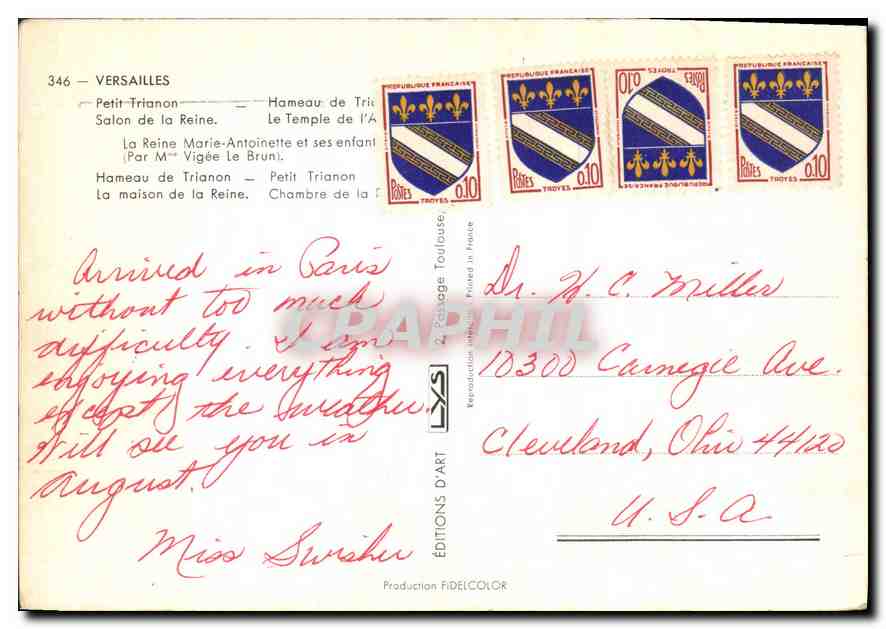 346 — VERSAILLES
Petit Trianon — Hameau de Tri
Salon de la Reine. Le Temple de l'A
La Reine Marie-Antoinette et ses enfant
(Par Mme Vigée Le Brun).
Hameau de Trianon — Petit Trianon
La maison de la Reine. Chambre de la
REPUBLIQUE FRANÇAISE
POSTES 0.10
TROYES
REPUBLIQUE FRANÇAISE
POSTES 0.10
TROYES
REPUBLIQUE FRANÇAISE
POSTES 0.10
TROYES
REPUBLIQUE FRANÇAISE
POSTES 0.10
TROYES
Arrived in Paris
without too much
difficulty. I am
enjoying everything
except the weather.
Will see you in
August.
Miss Swisher
ÉDITIONS D'ART LYS 2, Passage Toulouse,
Reproduction interdite Printed in France
Dr. W. C. Miller
10300 Carnegie Ave.
Cleveland, Ohio 44120
U. S. A
CPAPHIL
Production FiDELCOLOR